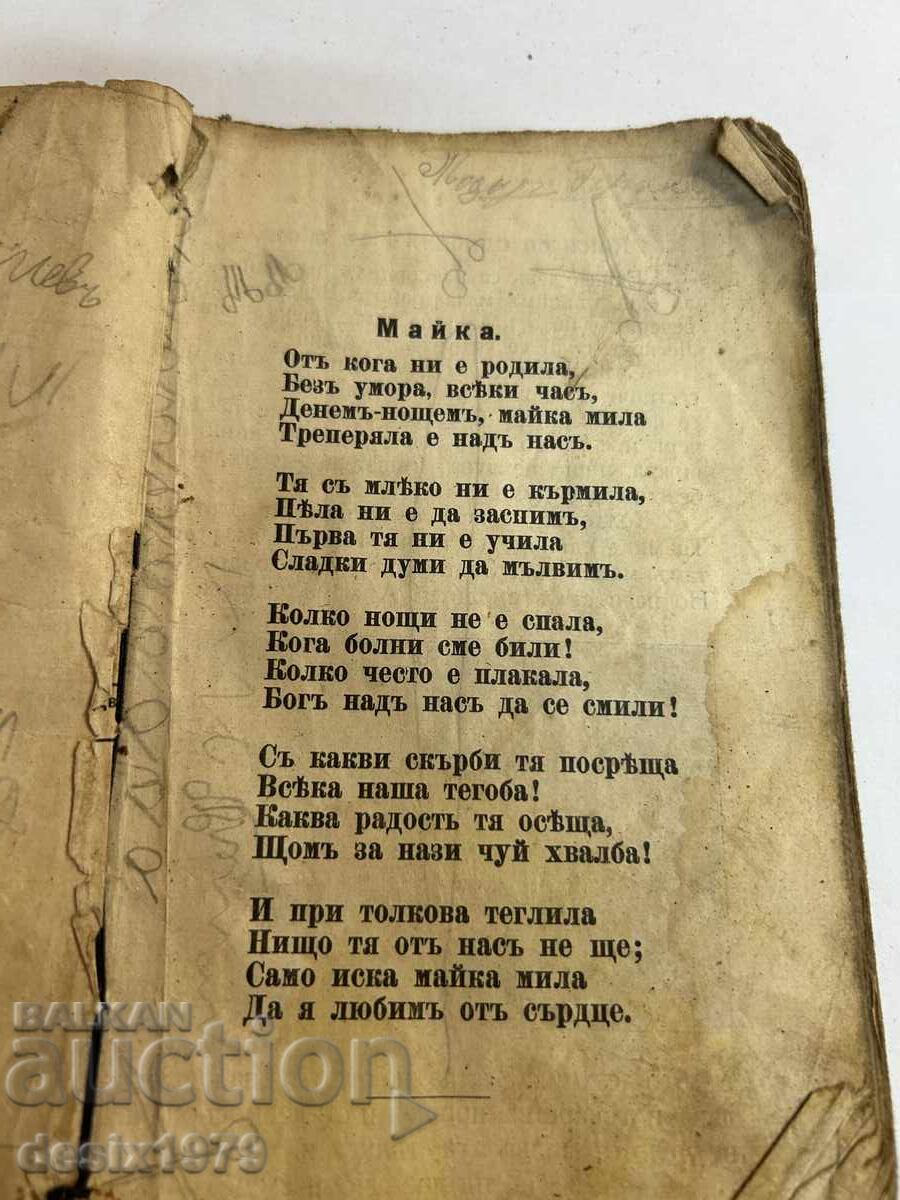 Майка.
Отъ кога ни е родила,
Безъ умора, всѣки часъ,
Денемъ-нощемъ, майка мила
Треперяла е надъ насъ.
Тя съ млѣко ни е кърмила,
Пѣла ни е да заспимъ,
Първа тя ни е учила
Сладки думи да мълвимъ.
Колко нощи не е спала,
Кога болни сме били!
Колко често е плакала,
Богъ надъ насъ да се смили!
Съ какви скърби тя посрѣща
Всѣка наша тегоба!
Каква радость тя осѣща,
Щомъ за нази чуй хвалба!
И при толкова теглила
Нищо тя отъ насъ не ще;
Само иска майка мила
Да я любимъ отъ сърдце.
BALKAN
auction
desix1979